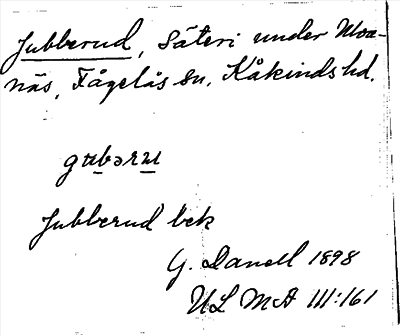 Jubberud, Säteri under Moa-
näs, Fågelås sn, Kåkinds hd.
Jubberud bek
G. Danell 1898
ULMA 111:161